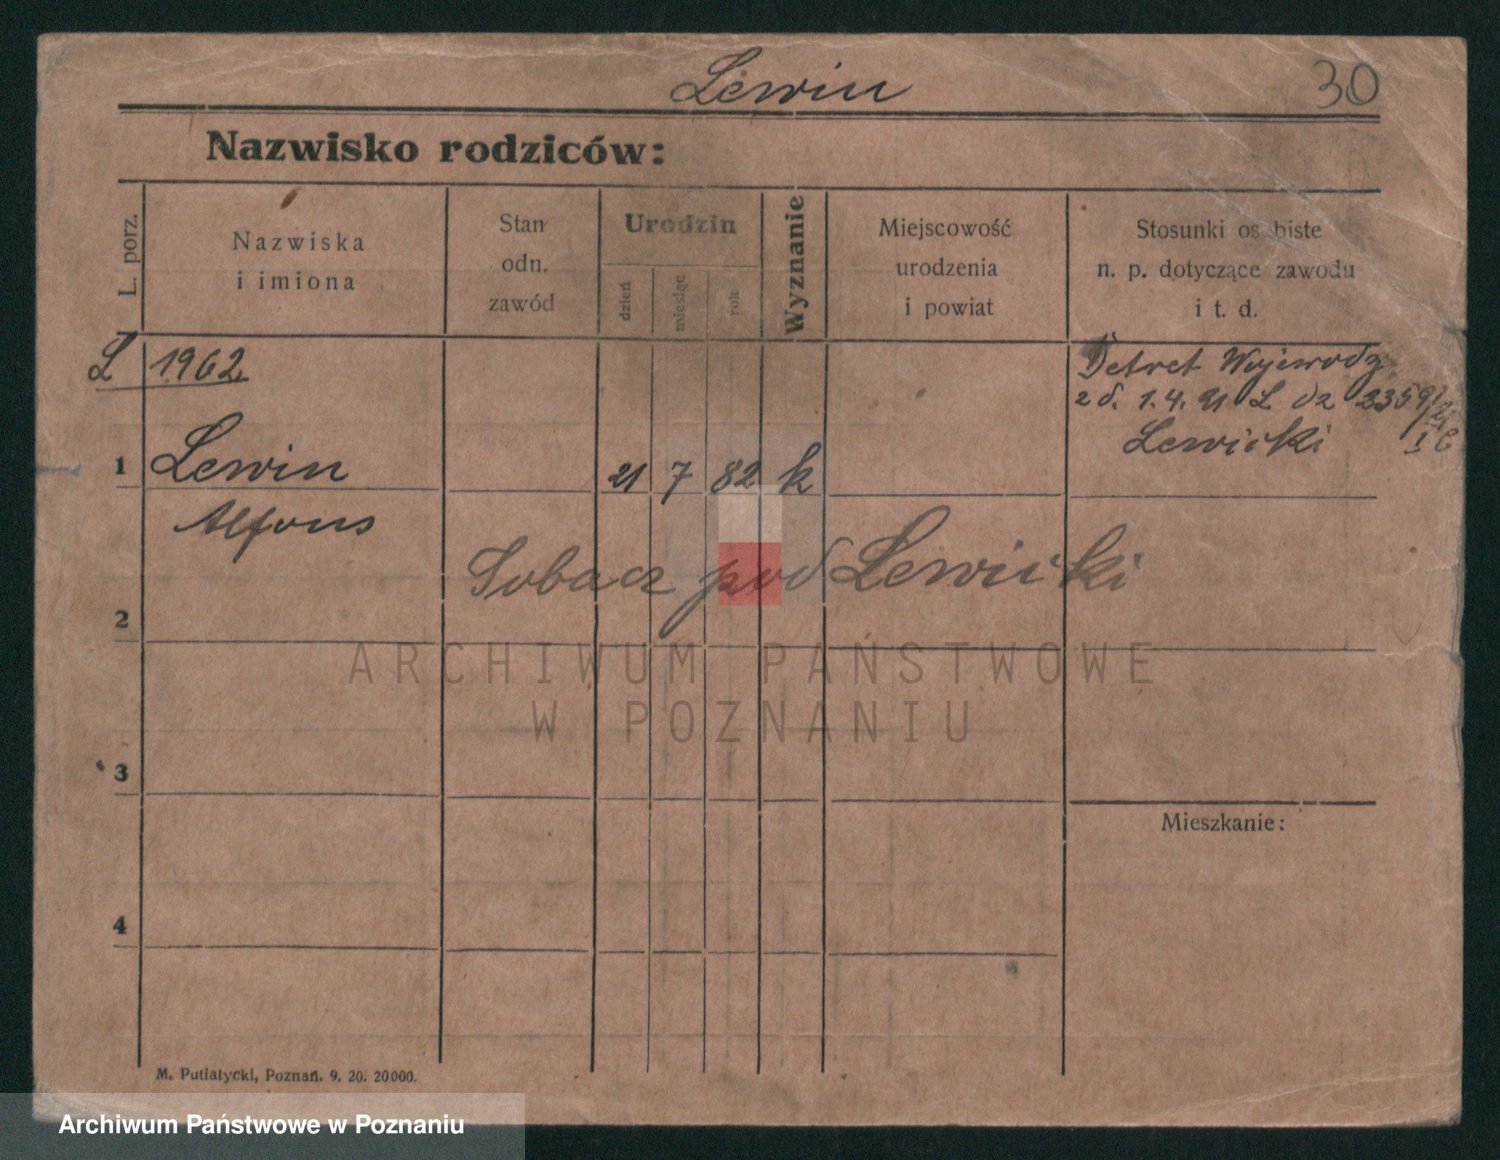 Lewin
30
Nazwisko rodziców:
L. porz.
Nazwiska
i imiona
Stan
odn.
zawód
Urodzin
dzień
miesiąc
rok
Wyznanie
Miejscowość
urodzenia
i powiat
Stosunki osobiste
n. p. dotyczące zawodu
i t. d.
L 1962
Dekret Wojewodz
z d. 1.4.21 L dz 2359/21
Lewicki I C
1 Lewin 21 7 82 k
Alfons
Zobacz pod Lewicki
2
ARCHIWUM PAŃSTWOWE
W POZNANIU
3
Mieszkanie:
4
M. Putiatycki, Poznań. 9. 20. 20000.
Archiwum Państwowe w Poznaniu